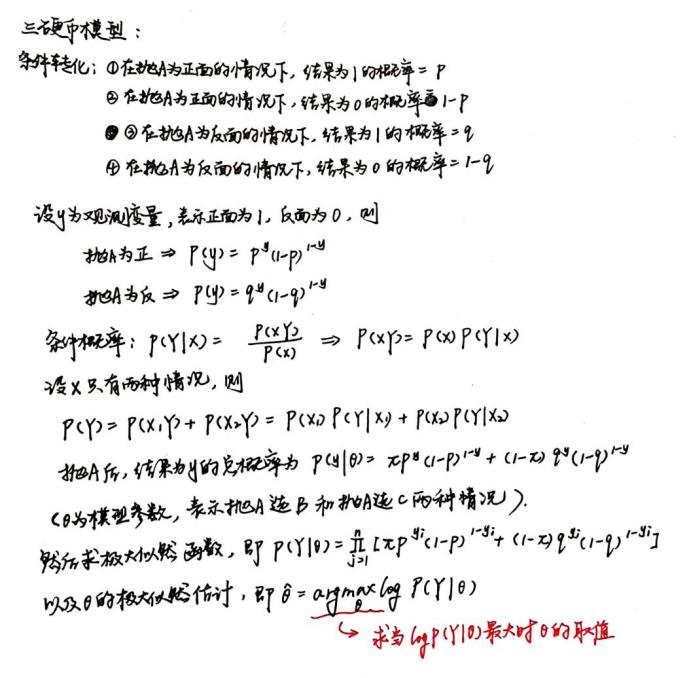 三硬币模型：
条件转化：①在抛A为正面的情况下，结果为1的概率=p
②在抛A为正面的情况下，结果为0的概率=1-p
③在抛A为反面的情况下，结果为1的概率=q
④在抛A为反面的情况下，结果为0的概率=1-q
设y为观测变量，表示正面为1，反面为0，则
抛A为正 ⇒ P(y)= p^y(1-p)^{1-y}
抛A为反 ⇒ P(y)= q^y(1-q)^{1-y}
条件概率：P(Y|X)= P(XY)/P(X) ⇒ P(XY)= P(X)P(Y|X)
设X只有两种情况，则
P(Y)= P(X₁Y)+P(X₂Y)= P(X₁)P(Y|X₁)+P(X₂)P(Y|X₂)
抛A后，结果为y的总概率为 P(y|θ)= πp^y(1-p)^{1-y}+(1-π)q^y(1-q)^{1-y}
(θ为模型参数，表示抛A选B和抛A选C两种情况).
然后求极大似然函数，即 P(Y|θ)=∏_{j=1}^{n}[πp^{yi}(1-p)^{1-yi}+(1-π)q^{yi}(1-q)^{1-yi}]
以及θ的极大似然估计，即 θ̂=argmax_θ log P(Y|θ)
↳ 求当log P(Y|θ)最大时θ的取值